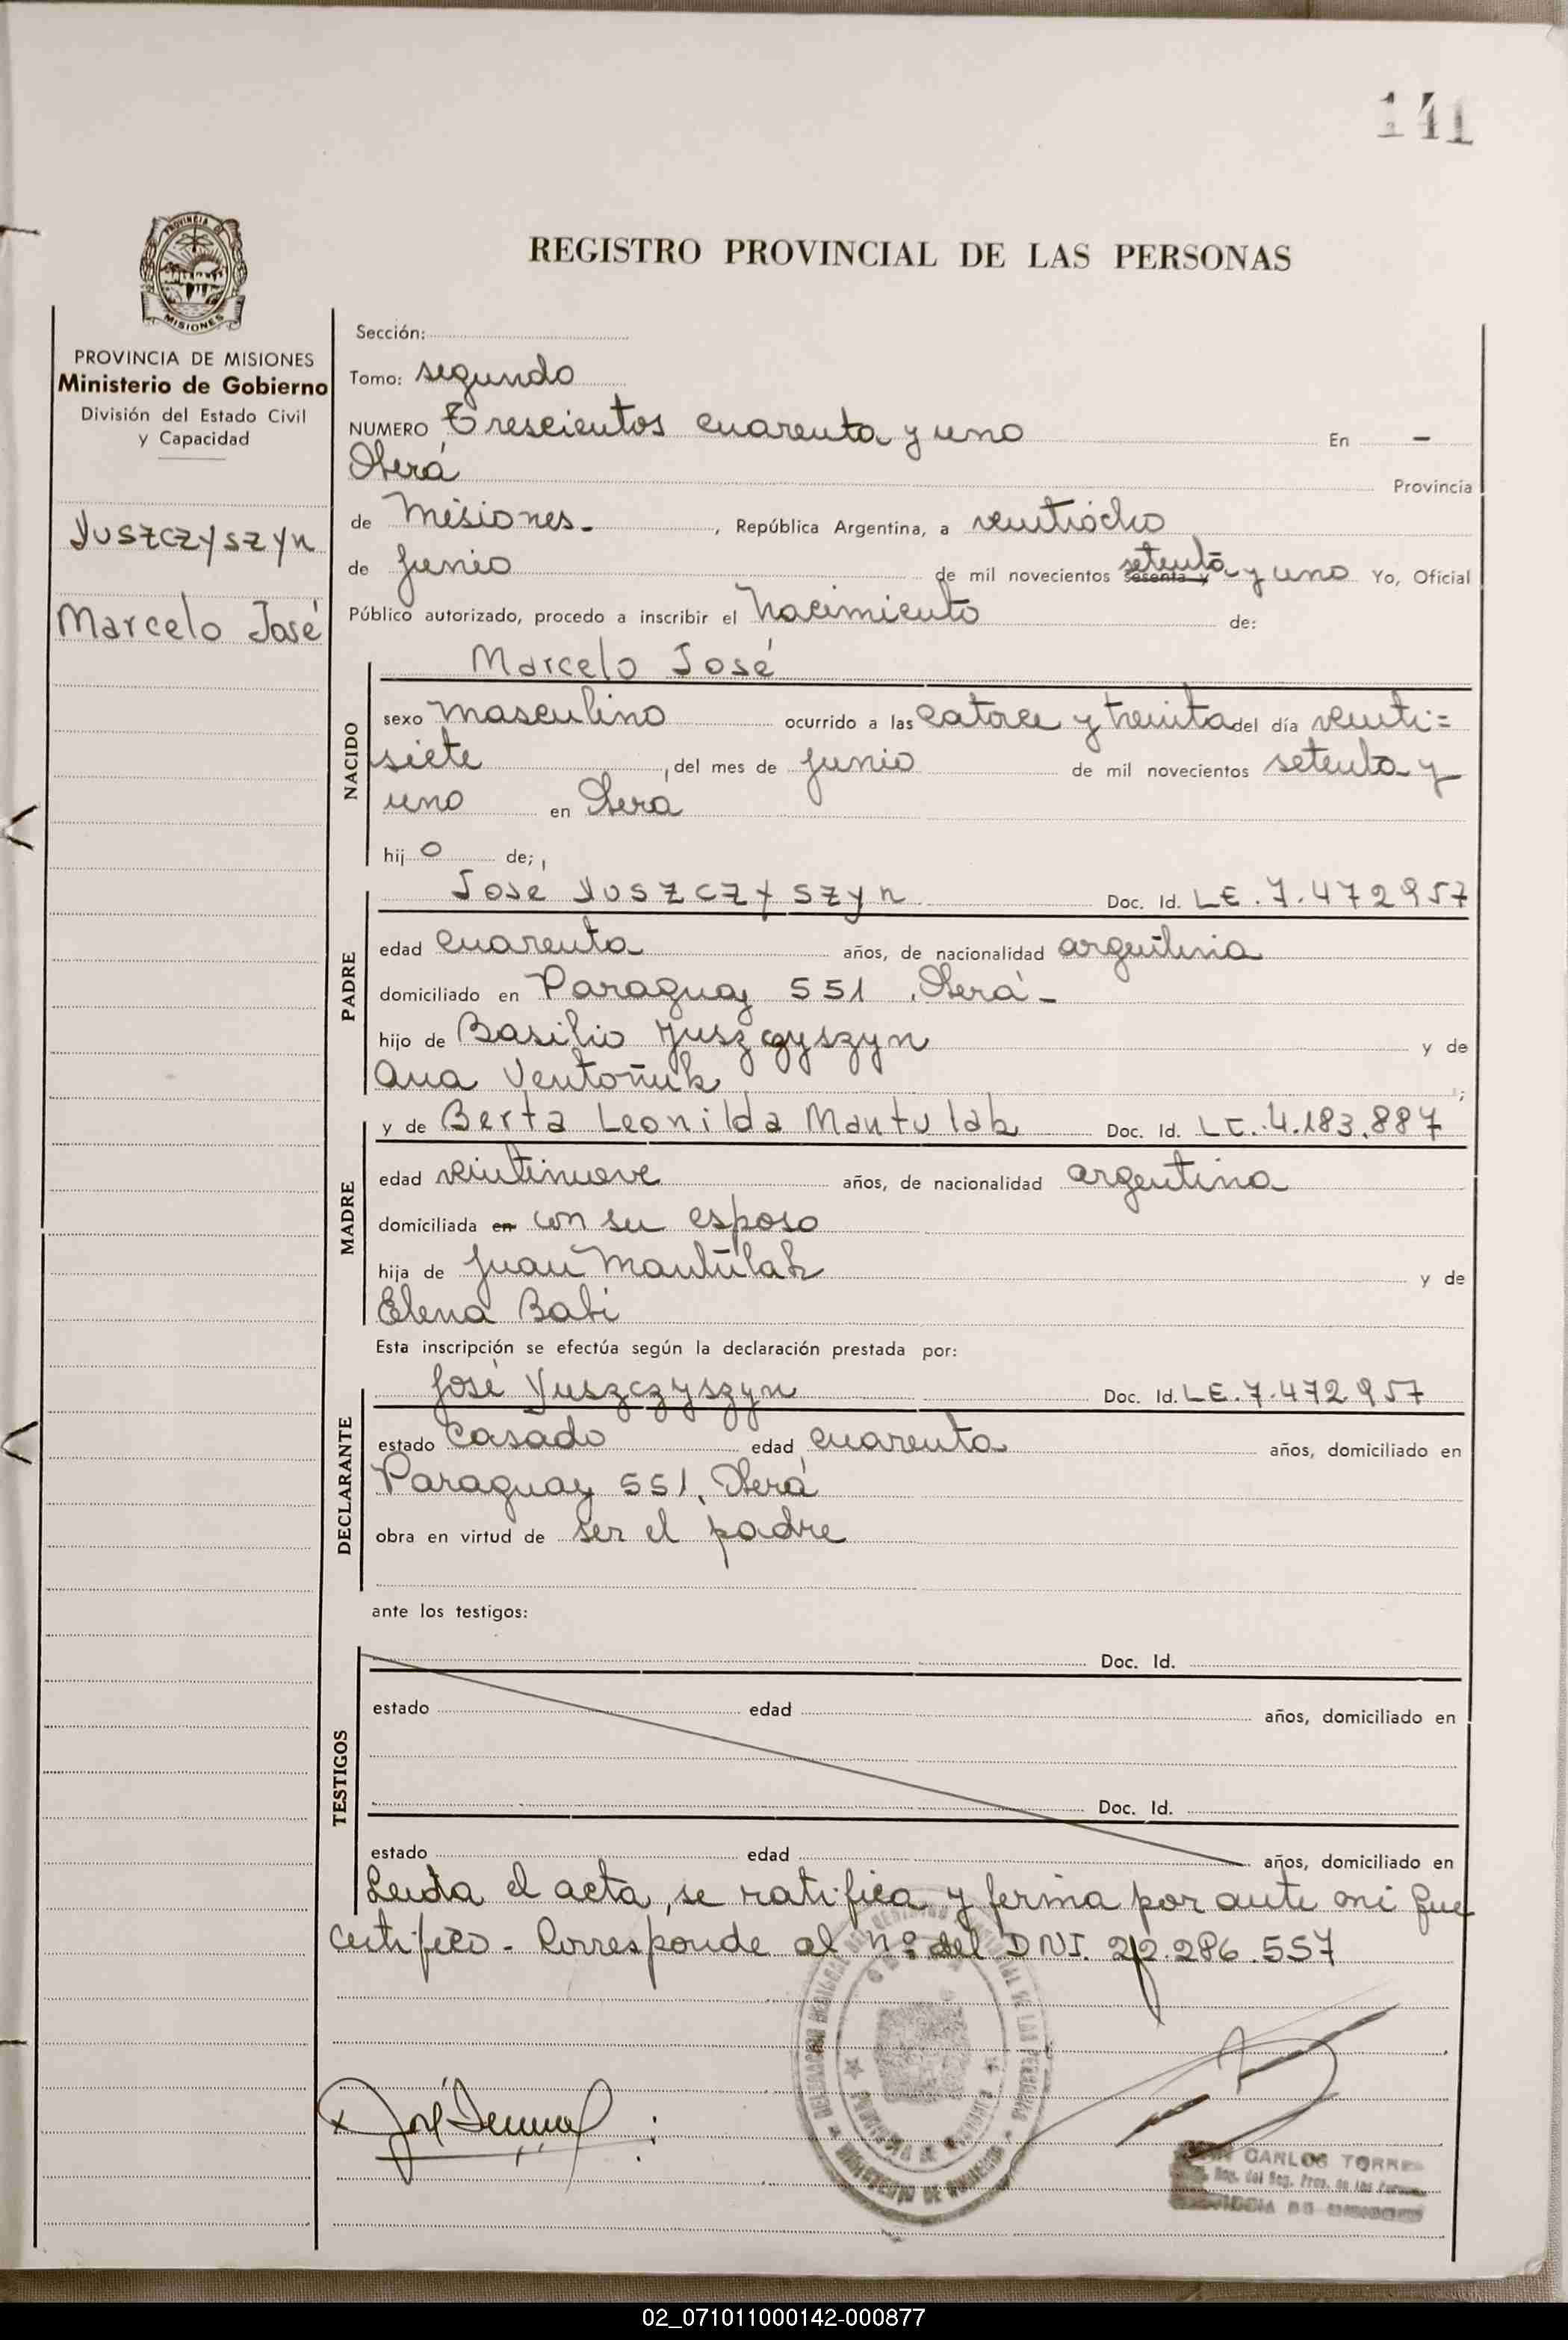 141
PROVINCIA DE MISIONES
Ministerio de Gobierno
División del Estado Civil
y Capacidad
Yuszczyszyn
Marcelo José
REGISTRO PROVINCIAL DE LAS PERSONAS
Sección:
Tomo: segundo
NUMERO Trescientos cuarenta y uno En -
Oberá Provincia
de Misiones- , República Argentina, a veintiocho
de Junio de mil novecientos sesenta y setenta y uno Yo, Oficial
Público autorizado, procedo a inscribir el Nacimiento de:
NACIDO
Marcelo José
sexo masculino ocurrido a las catorce y treinta del día veinti=
siete , del mes de Junio de mil novecientos setenta y
uno en Oberá
hijo de;
PADRE
José Yuszczyszyn Doc. Id. LE. 7.472957
edad cuarenta años, de nacionalidad argentina
domiciliado en Paraguay 551, Oberá-
hijo de Basilio Yuszczyszyn y de
Ana Ventoñuk ;
MADRE
y de Berta Leonilda Mantulak Doc. Id. LC. 4.183.887
edad veintinueve años, de nacionalidad argentina
domiciliada en con su esposo
hija de Juan Mantulak y de
Elena Babi
Esta inscripción se efectúa según la declaración prestada por:
DECLARANTE
José Yuszczyszyn Doc. Id. LE. 7.472.957
estado casado edad cuarenta años, domiciliado en
Paraguay 551, Oberá
obra en virtud de ser el padre
ante los testigos:
TESTIGOS
Doc. Id.
estado edad años, domiciliado en
Doc. Id.
estado edad años, domiciliado en
Leida el acta, se ratifica y firma por ante mi que
certifico - Corresponde al nº del DNI. 22.286.557
CARLOS TORRES
02_071011000142-000877